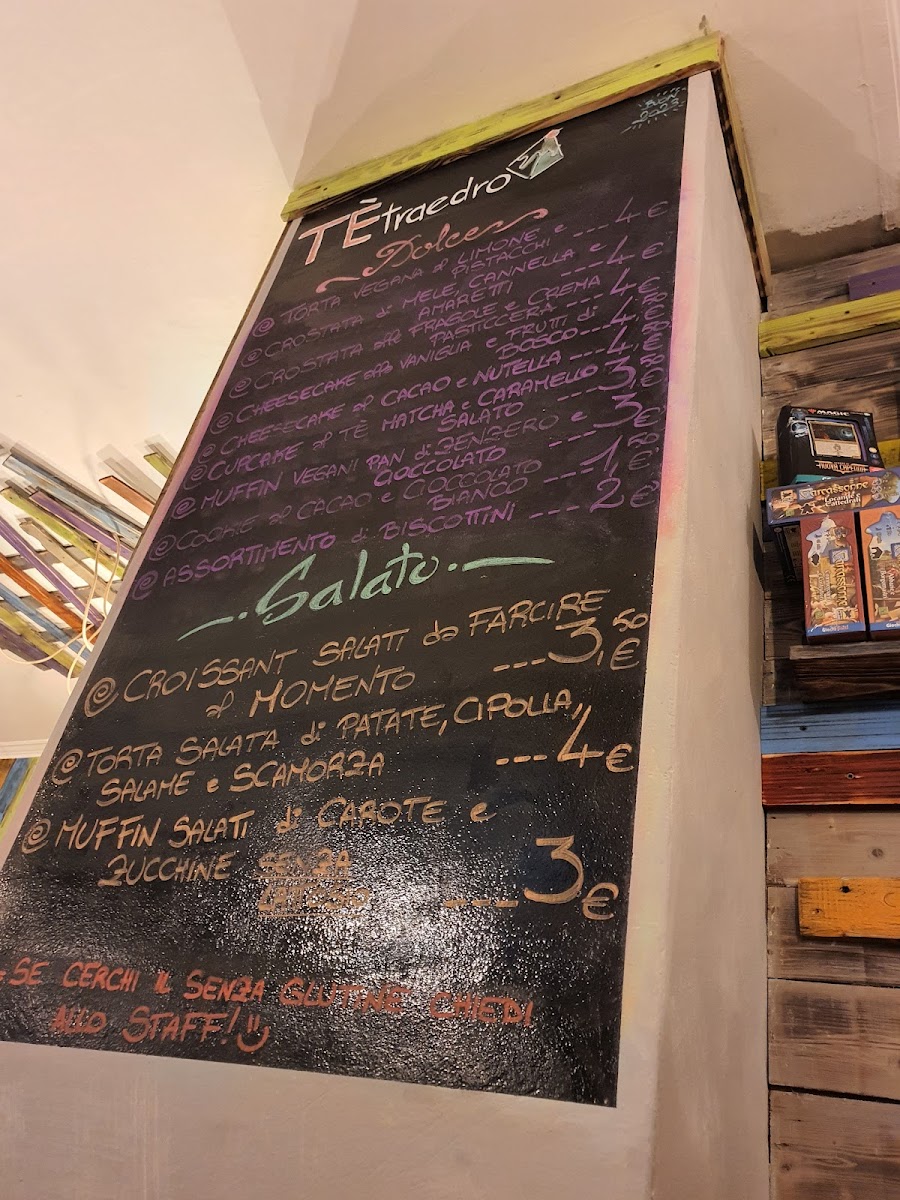 2023
TÈtraedro
Dolce
@ TORTA VEGANA al LIMONE e
PISTACCHI --- 4 €
@ CROSTATA di MELE, CANNELLA e
AMARETTI --- 4 €
@ CROSTATA alle FRAGOLE e CREMA
PASTICCERA --- 4 €
@ CHEESECAKE alla VANIGLIA e FRUTTI di
BOSCO --- 4,50 €
@ CHEESECAKE al CACAO e NUTELLA --- 4,50 €
@ CUPCAKE al TÈ MATCHA e CARAMELLO
SALATO --- 3,50 €
@ MUFFIN VEGANI PAN di ZENZERO e
CIOCCOLATO --- 3 €
@ COOKIE al CACAO e CIOCCOLATO
BIANCO --- 1,50 €
@ ASSORTIMENTO di BISCOTTINI --- 2 €
Salato
@ CROISSANT SALATI da FARCIRE
al MOMENTO --- 3,50 €
@ TORTA SALATA di PATATE, CIPOLLA,
SALAME e SCAMORZA --- 4 €
@ MUFFIN SALATI di CAROTE e
ZUCCHINE SENZA
LATTOSIO --- 3 €
SE CERCHI IL SENZA GLUTINE CHIEDI
ALLO STAFF!
MAGIC
Carcassonne
Locande e
Cattedrali
Carcassonne